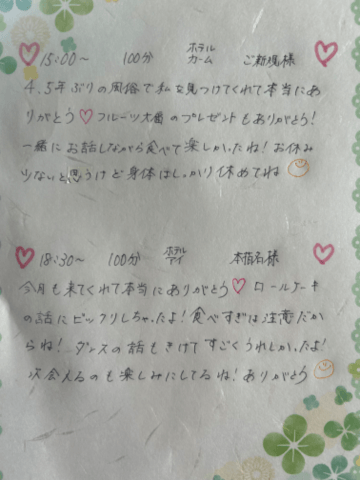 ♡ 15:00〜 100分 ホテル カーム ご新規様 ♡
4、5年ぶりの風俗で私を見つけてくれて本当にあ
りがとう♡フルーツ大番のプレゼントもありがとう!
一緒にお話しながら食べて楽しかったね!お休み
少ないと思うけど身体はしっかり休めてね
♡ 18:30〜 100分 ホテル アイ 本指名様 ♡
今月も来てくれて本当にありがとう♡ロールケーキ
の話にビックリしちゃったよ!食べすぎは注意だか
らね!ダンスの話もきけてすごくうれしかったよ!
次会えるのも楽しみにしてるね!ありがとう